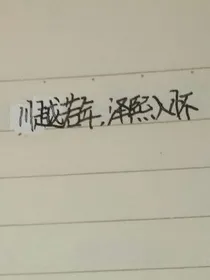 川越若年，泽熙入怀